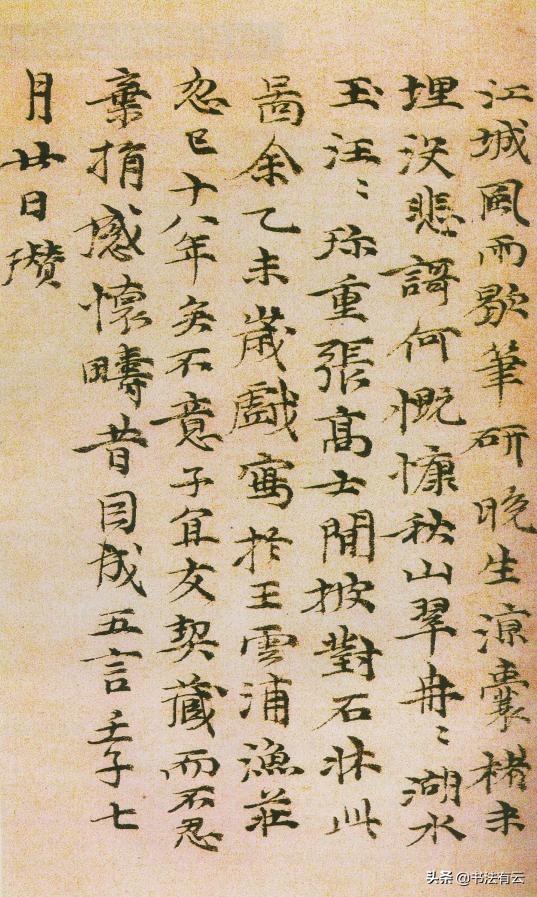 江城風雨歇筆研晚生涼囊楮未
埋没悲謌何慨慷秋山翠冉〻湖水
玉汪〻珎重張高士閒披對石牀此
啚余乙未歲戲寫於王雲浦漁莊
忽已十八年矣不意子宜友契藏而不忍
棄捐感懷疇昔因成五言壬子七
月廿日瓚
头条 @书法有云